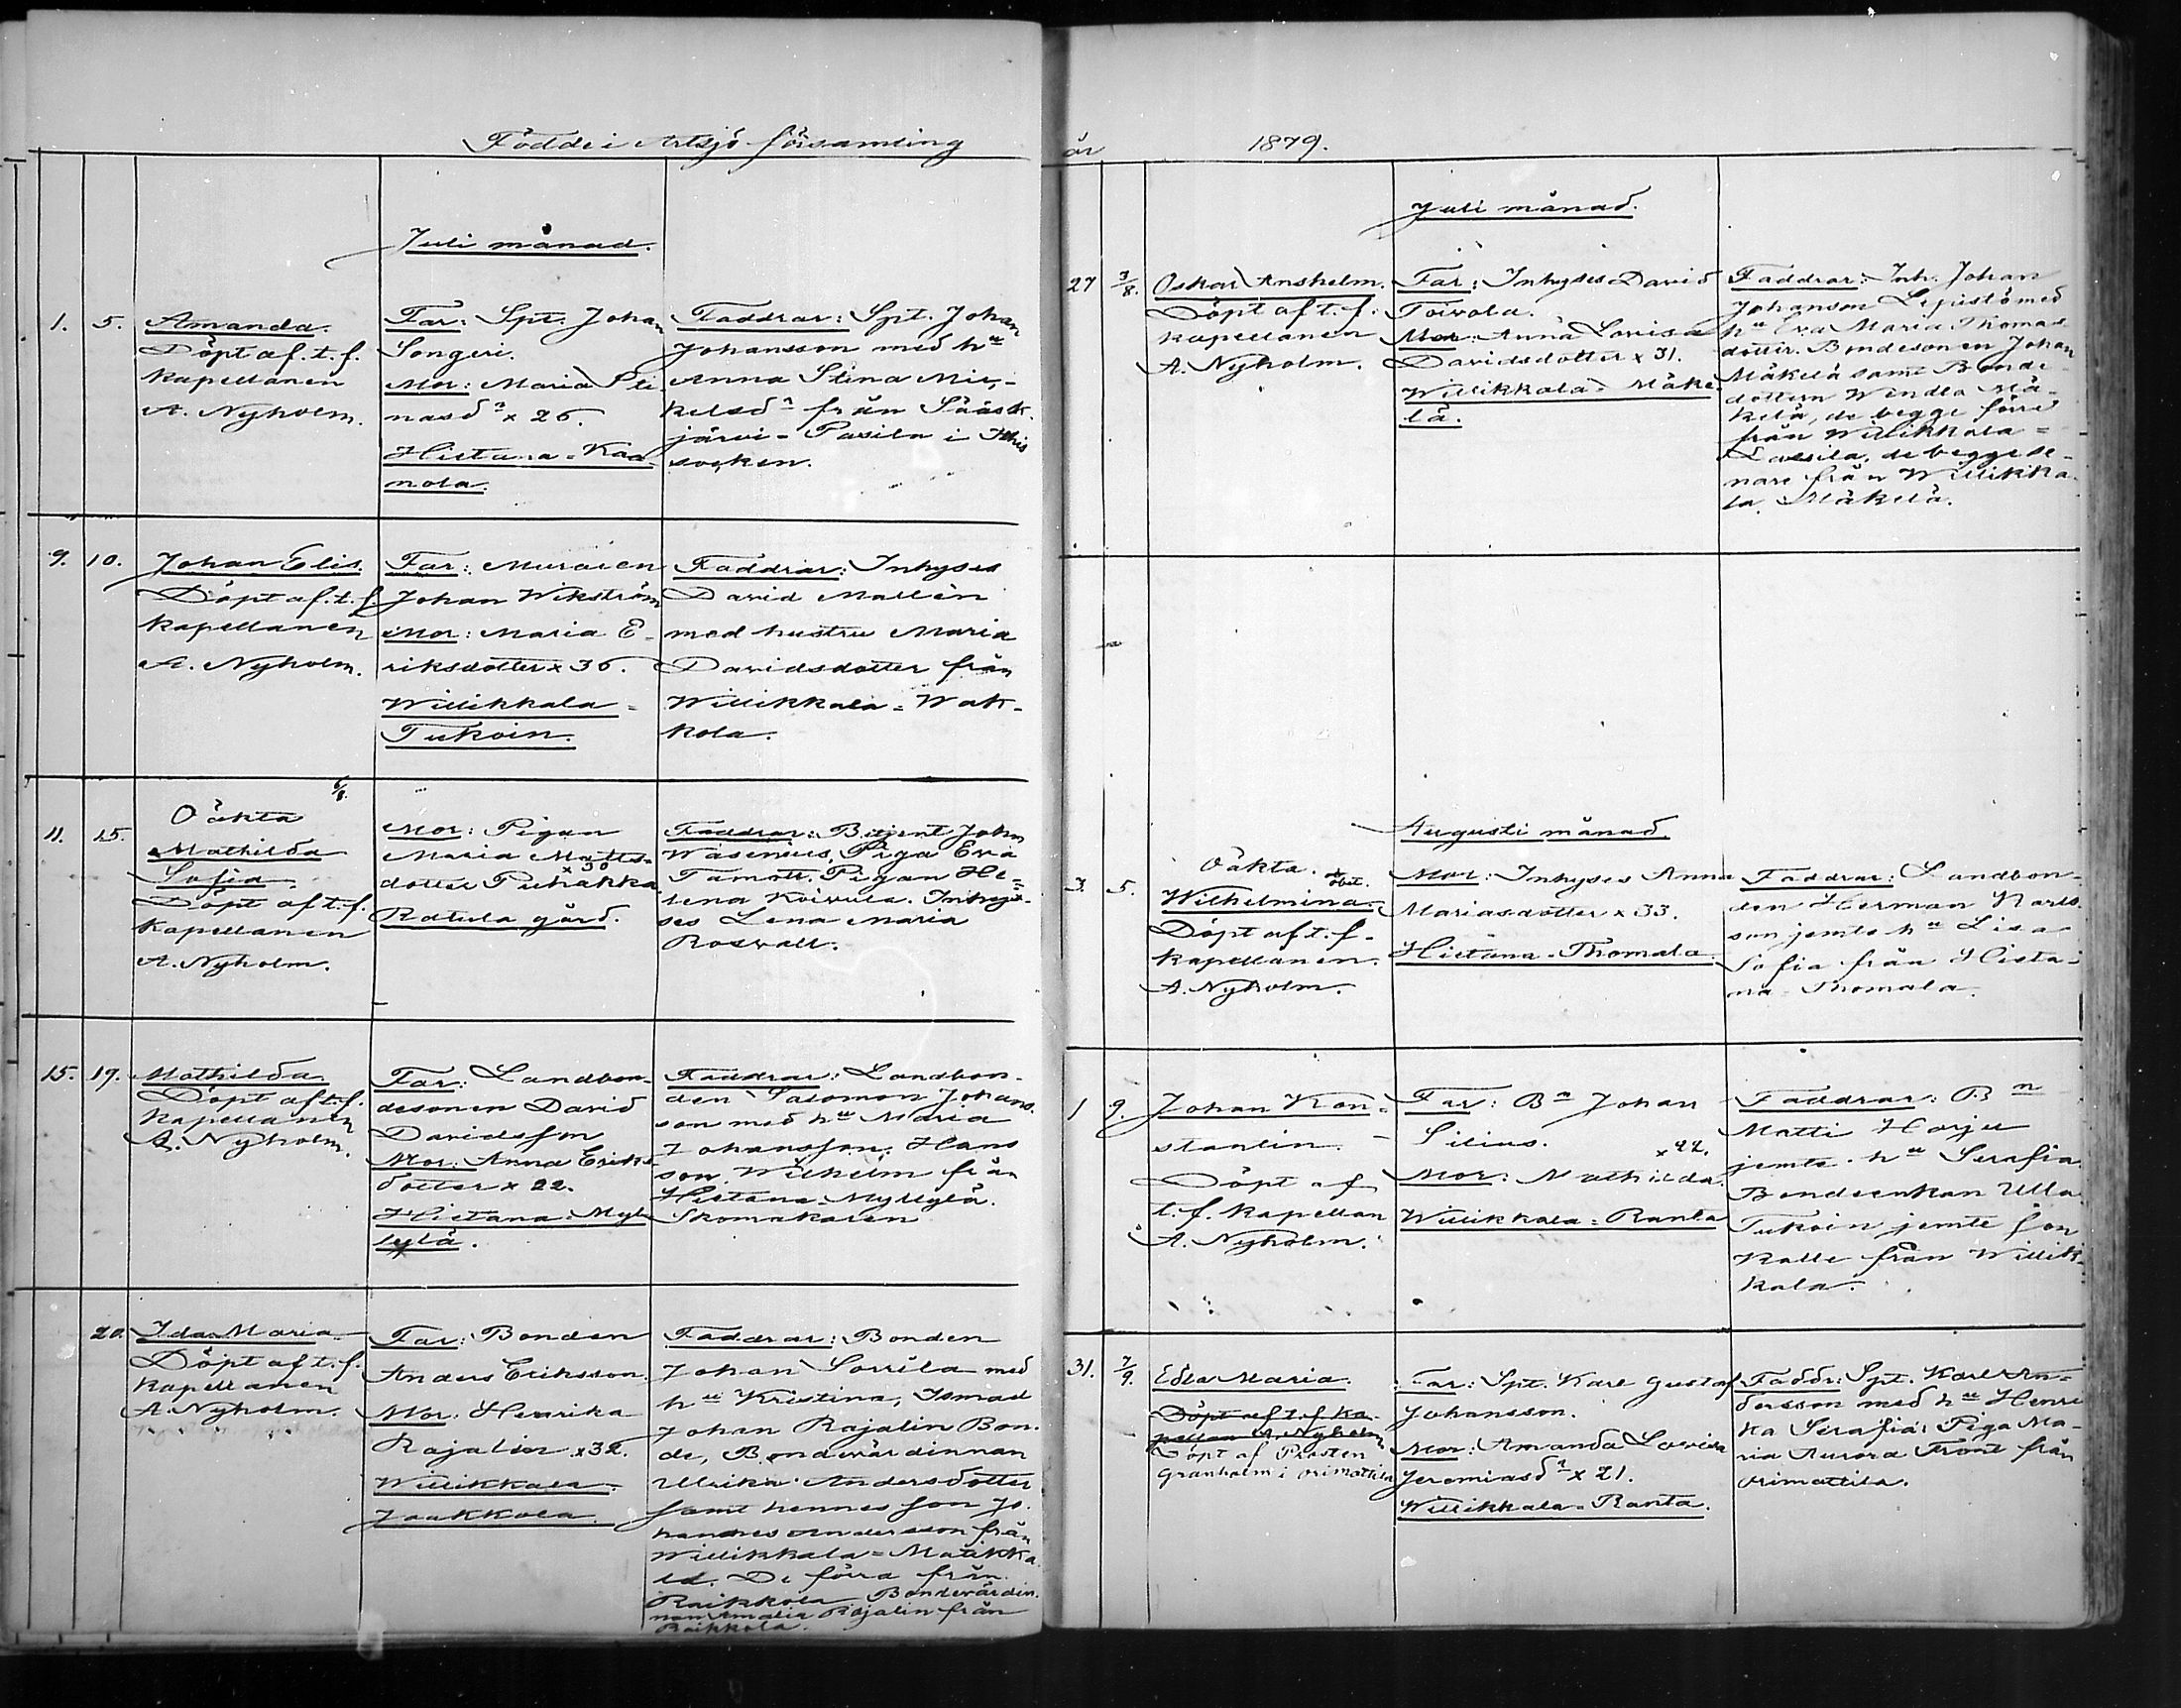 Födde i Artsjö församling
Juli månad.
1. 5. Amanda.
Döpt af. t. f.
kapellanen
A. Nyholm.
Far: Spt. Johan
Songeri.
Mor: Maria Sti
nasdr x 26.
Hietana = Kaa
nola.
Faddrar: Spt. Johan
Johansson med hu
Anna Stina Mic-
kelsdr från Sääsk-
järvi - Pasila i Itis
socken.
9. 10. Johan Elis.
Döpt af. t. f.
kapellanen
A. Nyholm.
Far: Muraren
Johan Wikström
Mor: Maria E-
riksdotter x 36.
Willikkala =
Tukoin.
Faddrar: Inhyses
David Mallén
med hustru Maria
Davidsdotter från
Willikkala = Wak-
kola.
6/8.
11. 15. Oäkta
Mathilda
Sofia.
Döpt af t. f.
kapellanen
A. Nyholm.
Mor: Pigan
Maria Matts-
x 30
dotter Puhakka
Ratula gård.
Faddrar: Betjent John
Wasenius, Piga Eva
Tamott. Pigan He-
lena Koivula. Inhy-
ses Lena Maria
Roswall.
15. 19. Mathilda.
Döpt af t. f.
kapellanen
A. Nyholm.
Far: Landbon-
desonen David
Davidsson
Mor: Anna Eriks-
dotter x 22.
Hietana = Myl
lylä.
Faddrar: Landbon-
den Salomon Johans-
son med hu Maria
Johansson. Hans
son Wilhelm från
Hietana = Myllylä.
Skomakaren
20. Ida Maria
Döpt af t. f.
kapellanen
A. Nyholm.
Far: Bonden
Anders Eriksson.
Mor: Henrika
Rajalin x 32.
Willikkala =
Jaakkola.
Faddrar: Bonden
Johan Sorrila med
hu Kristina,
Johan Rajalin Bon-
de, Bondevärdinnan
Ulrika Andersdotter
samt hennes son Jo-
hannes Andersson från
Willikkala = Matikka
la. De förra från
Raikkola Bondevärdin-
nan Amalia Rajalin från
Raikkola.
år 1879.
Juli månad.
27 3/8. Oskar Anshelm.
Döpt af t. f.
kapellanen
A. Nyholm.
Far: Inhyses David
Toivola.
Mor: Anna Lovisa
Davidsdotter x 31.
Willikkala = Mäke
lä.
Faddrar: Inh. Johan
Johansson Lepistö med
hu Eva Maria Thomas
dotter. Bondesonen Johan
Mäkelä samt Bonde-
dottern Wendla Mä-
kelä, de begge förre
från Willikkala =
Lassila, de begge se-
nare från Willikka-
la Mäkelä.
Augusti månad.
3. 5. Oäkta. obit.
Wilhelmina.
Döpt af t. f.
kapellanen.
A. Nyholm.
Mor: Inhyses Anna
Mariasdotter x 33.
Hietana = Thomala.
Faddrar: Landbon-
den Herman Karls-
son jemte hu Lisa
Sofia från Hieta-
na Thomala.
1 9. Johan Kon-
stantin.
Döpt af
t. f. kapellan
A. Nyholm.
Far: Bn Johan
Silius.
x 22.
Mor: Mathilda
Willikkala = Ranta
Faddrar: Bn
Matti Harju
jemte hu Serafia
Bondeenkan Ulla
Tukoin jemte son
Kalle från Willik-
kala.
31. 7/9. Edla Maria.
Döpt af t. f. ka-
pellan A. Nyholm
Döpt af Prosten
Granholm i Orimattila
Far: Spt. Karl Gustaf
Johansson.
Mor: Amanda Lovisa
Jeremiasdr x 21.
Willikkala = Ranta.
Faddr: Spt. Karl An-
dersson med hu Henri
ka Serafia, Piga Ma-
ria Aurora Front från
Orimattila.